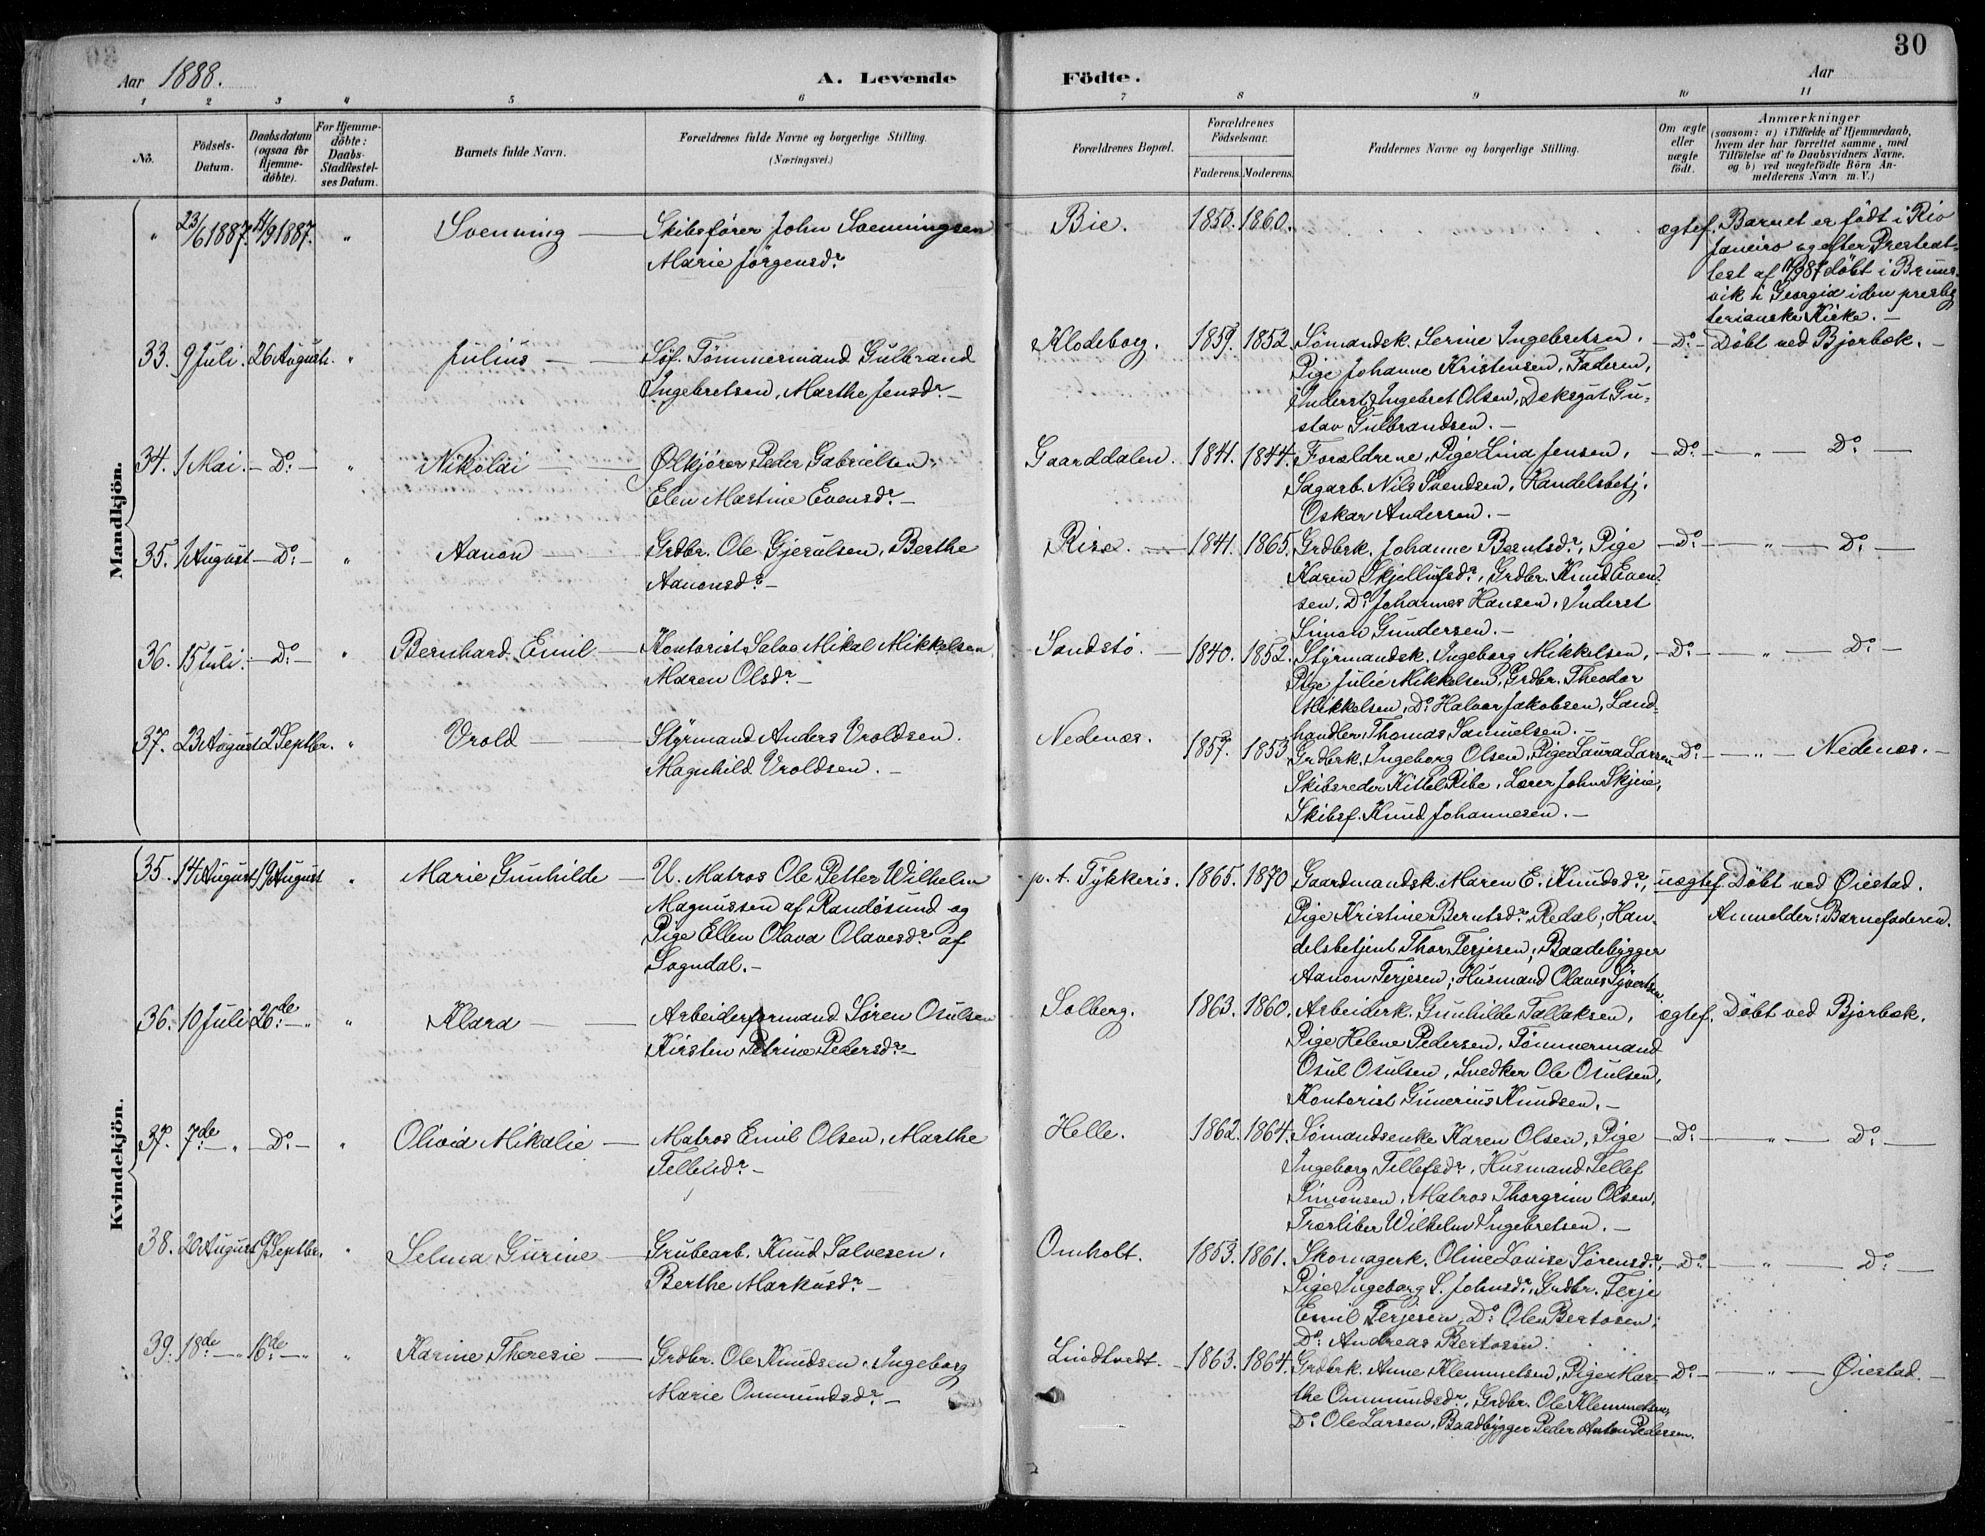 30
Aar 1888.
A. Levende
Födte.
Aar
1 2 3 4 5 6 7 8 9 10 11
No.
Födsels-
Datum.
Daabsdatum
(ogsaa for
Hjemme-
döbte).
For Hjemme-
döbte:
Daabs-
Stadfæstel-
ses Datum.
Barnets fulde Navn.
Forældrenes fulde Navne og borgerlige Stilling.
(Næringsvei.)
Forældrenes Bopæl.
Forældrenes
Födselsaar.
Faderens. Moderens.
Faddernes Navne og borgerlige Stilling.
Om ægte
eller
uægte
födt.
Anmærkninger
(saasom: a) i Tilfælde af Hjemmedaab,
hvem der har forrettet samme, med
Tilföielse af to Daabsvidners Navne,
og b) ved uægtefödte Börn An-
melderens Navn m. V.)
Mandkjön.
" 23/6 1887. 11/9 1887. " Svenning — Skibsfører John Svenningsen
Marie Jørgensdr.
Bie. 1850. 1860. ægtef. Barnet er født i Rio
Janeiro og efter Presteat-
test af 11/9 87 døbt i Bruns-
vik i Georgia i den presby-
terianske Kirke. —
33. 9 Juli. 26 August. " Julius — Søf. Tømmermand Gulbrand
Ingebretsen, Marthe Jensdr. —
Klodeborg. 1859. 1852. Sømandsk. Serine Ingebretsen,
Pige Johanne Kristensen, Faderen,
Inderst Ingebret Olsen, Deksgut Gu-
stav Gulbrandsen. —
— Do — Døbt ved Bjorbæk. —
34. 1 Mai. — Do — " Nikolai — Ølkjører Peder Gabrielsen,
Elen Martine Evensdr. —
Gaarddalen. 1841. 1844. Forældrene, Pige Lina Jensen,
Sagarb. Nils Svendsen, Handelsbetj.
Oskar Andersen. —
— Do — " — Do —
35. 1 August — Do — " Aanon — Grdbr. Ole Gjerulsen, Berthe
Aanonsdr. —
Rise. — 1841. 1865. Grdbrk. Johanne Berntsdr., Pige
Karen Skjellufsdr., Grdbr. Knud Even-
sen, Do Johannes Hansen, Inderst
Simon Gundersen. —
— Do — " — Do —
36. 15 Juli. — Do — " Bernhard Emil — Kontorist Salve Mikal Mikkelsen
Maren Olsdr. —
Sandstø. — 1840. 1852. Styrmandsk. Ingeborg Mikkelsen,
Pige Julie Mikkelsen, Grdbr. Theodor
Mikkelsen, Do Halvor Jakobsen, Land-
handler Thomas Samuelsen. —
— Do — " — Do —
37. 23 August 2 Septbr. " Vrold — Styrmand Anders Vroldsen.
Magnhild Vroldsen. —
Nedenæs. 1857. 1853. Grdbrk. Ingeborg Olsen, Pige Laura Larsen
Skibsreder Kittel Ribe, Lærer John Skjeie,
Skibsf. Knud Johannesen. —
— Do — " — Nedenæs. —
Kvindekjön.
35. 14 August 19 August " Marie Gunhilde — U. Matros Ole Petter Wilhelm
Magnussen af Randøsund og
Pige Ellen Olava Olavesdr. af
Sogndal. —
p. t. Tykkeris. 1865. 1870 Gaardmandsk. Maren E. Knudsdr.,
Pige Kristine Berntsdr. Redal, Han-
delsbetjent Thor Terjesen, Baadebygger
Aanon Terjesen, Husmand Olaves Sjvertsen.
uægtef. Døbt ved Øiestad.
Anmelder: Barnefaderen.
36. 10 Juli 26de — " " Klara — Arbeiderformand Søren Osulsen
Kirsten Petrine Pedersdr. —
Solberg. 1863. 1860. Arbeiderk. Gunhilde Tallaksen,
Pige Helene Pedersen, Tømmermand
Osul Osulsen, Snedker Ole Osulsen,
Kontorist Gunerius Knudsen. —
ægtef. Døbt ved Bjorbæk.
37. 7de — " — Do — " Olivia Mikalie — Matros Emil Olsen, Marthe
Tellefsdr. —
Helle. 1862. 1864. Sømandsenke Karen Olsen, Pige
Ingeborg Tellefsdr., Husmand Tellef
Simonsen, Matros Thorgrim Olsen,
Wilhelm Ingebretsen. —
— Do — " — Do —
38. 20 August 9 Septbr. " Selma Gurine — Grubearb. Knud Salvesen,
Berthe Markusdr. —
Omholt. 1853. 1861. Skomagerk. Oline Lovise Sørensdr.,
Pige Ingeborg S. Johnsdr., Grdbr. Terje
Emil Terjesen, Do Ole Bertosen,
Do Andreas Bertosen.
— Do — " — Do —
39. 18de — " 16de — " " Karine Theresie — Grdbr. Ole Knudsen, Ingeborg
Marie Ommundsdr. —
Lindtvedt. — 1863. 1864. Grdbrk. Anne Klemmetsen, Pige Mar-
the Ommundsdr., Grdbr. Ole Klemmetsen,
Do Ole Larsen, Baadbygger Peder Anton Pedersen.
— Do — " — Øiestad. —